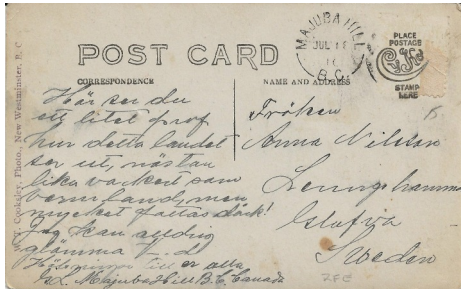 MAJUBA HILL
JUL 18
B.C.
PLACE
POSTAGE
STAMP
HERE
POST CARD
CORRESPONDENCE
NAME AND ADDRESS
Cooksley, Photo., New Westminster, B. C.
Här ser du
ett litet prof
hur detta landet
ser ut, nästan
lika vackert som
vermland, men
mycket fattas dock!
Jag kan aldrig
glömma
till er alla
Majuba Hill B.C. Canada
Fröken
Anna Nilsson
Glafva
Sweden